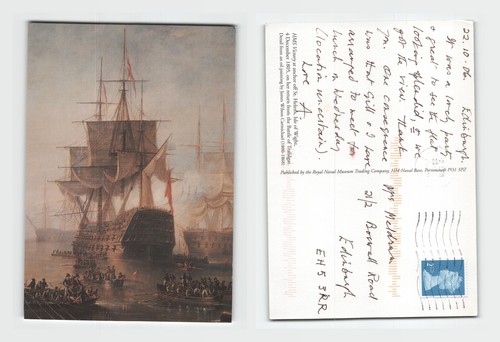 22.10.06 Edinburgh
It was a lovely party
& great to see the flat
looking splendid, & we
got the view. Thank
you. One consequence
was that Gill & I have
arranged to meet for
lunch on Wednesday
(location uncertain).
Love
A.
HMS Victory at anchor off St. Helens, Isle of Wight,
4 December 1805, on her return from the Battle of Trafalgar.
Detail from an oil painting by James Wilson Carmichael (1800-1868)
Published by the Royal Naval Museum Trading Company, HM Naval Base, Portsmouth PO1 3PZ
Mrs Meldrum
21/2 Boswall Road
Edinburgh
EH5 3RR